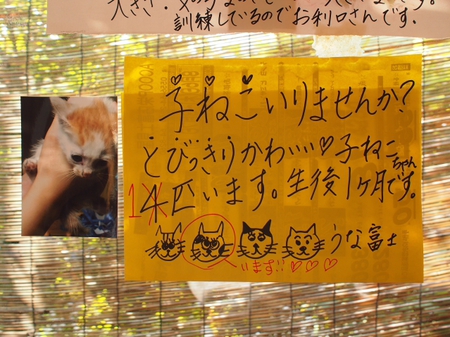 訓練しているのでお利口さんです.
子ねこいりませんか?
とびっきりかわいい♡子ねこちゃん
1匹います。生後1ヶ月です。
うな富士
います!!♡♡♡